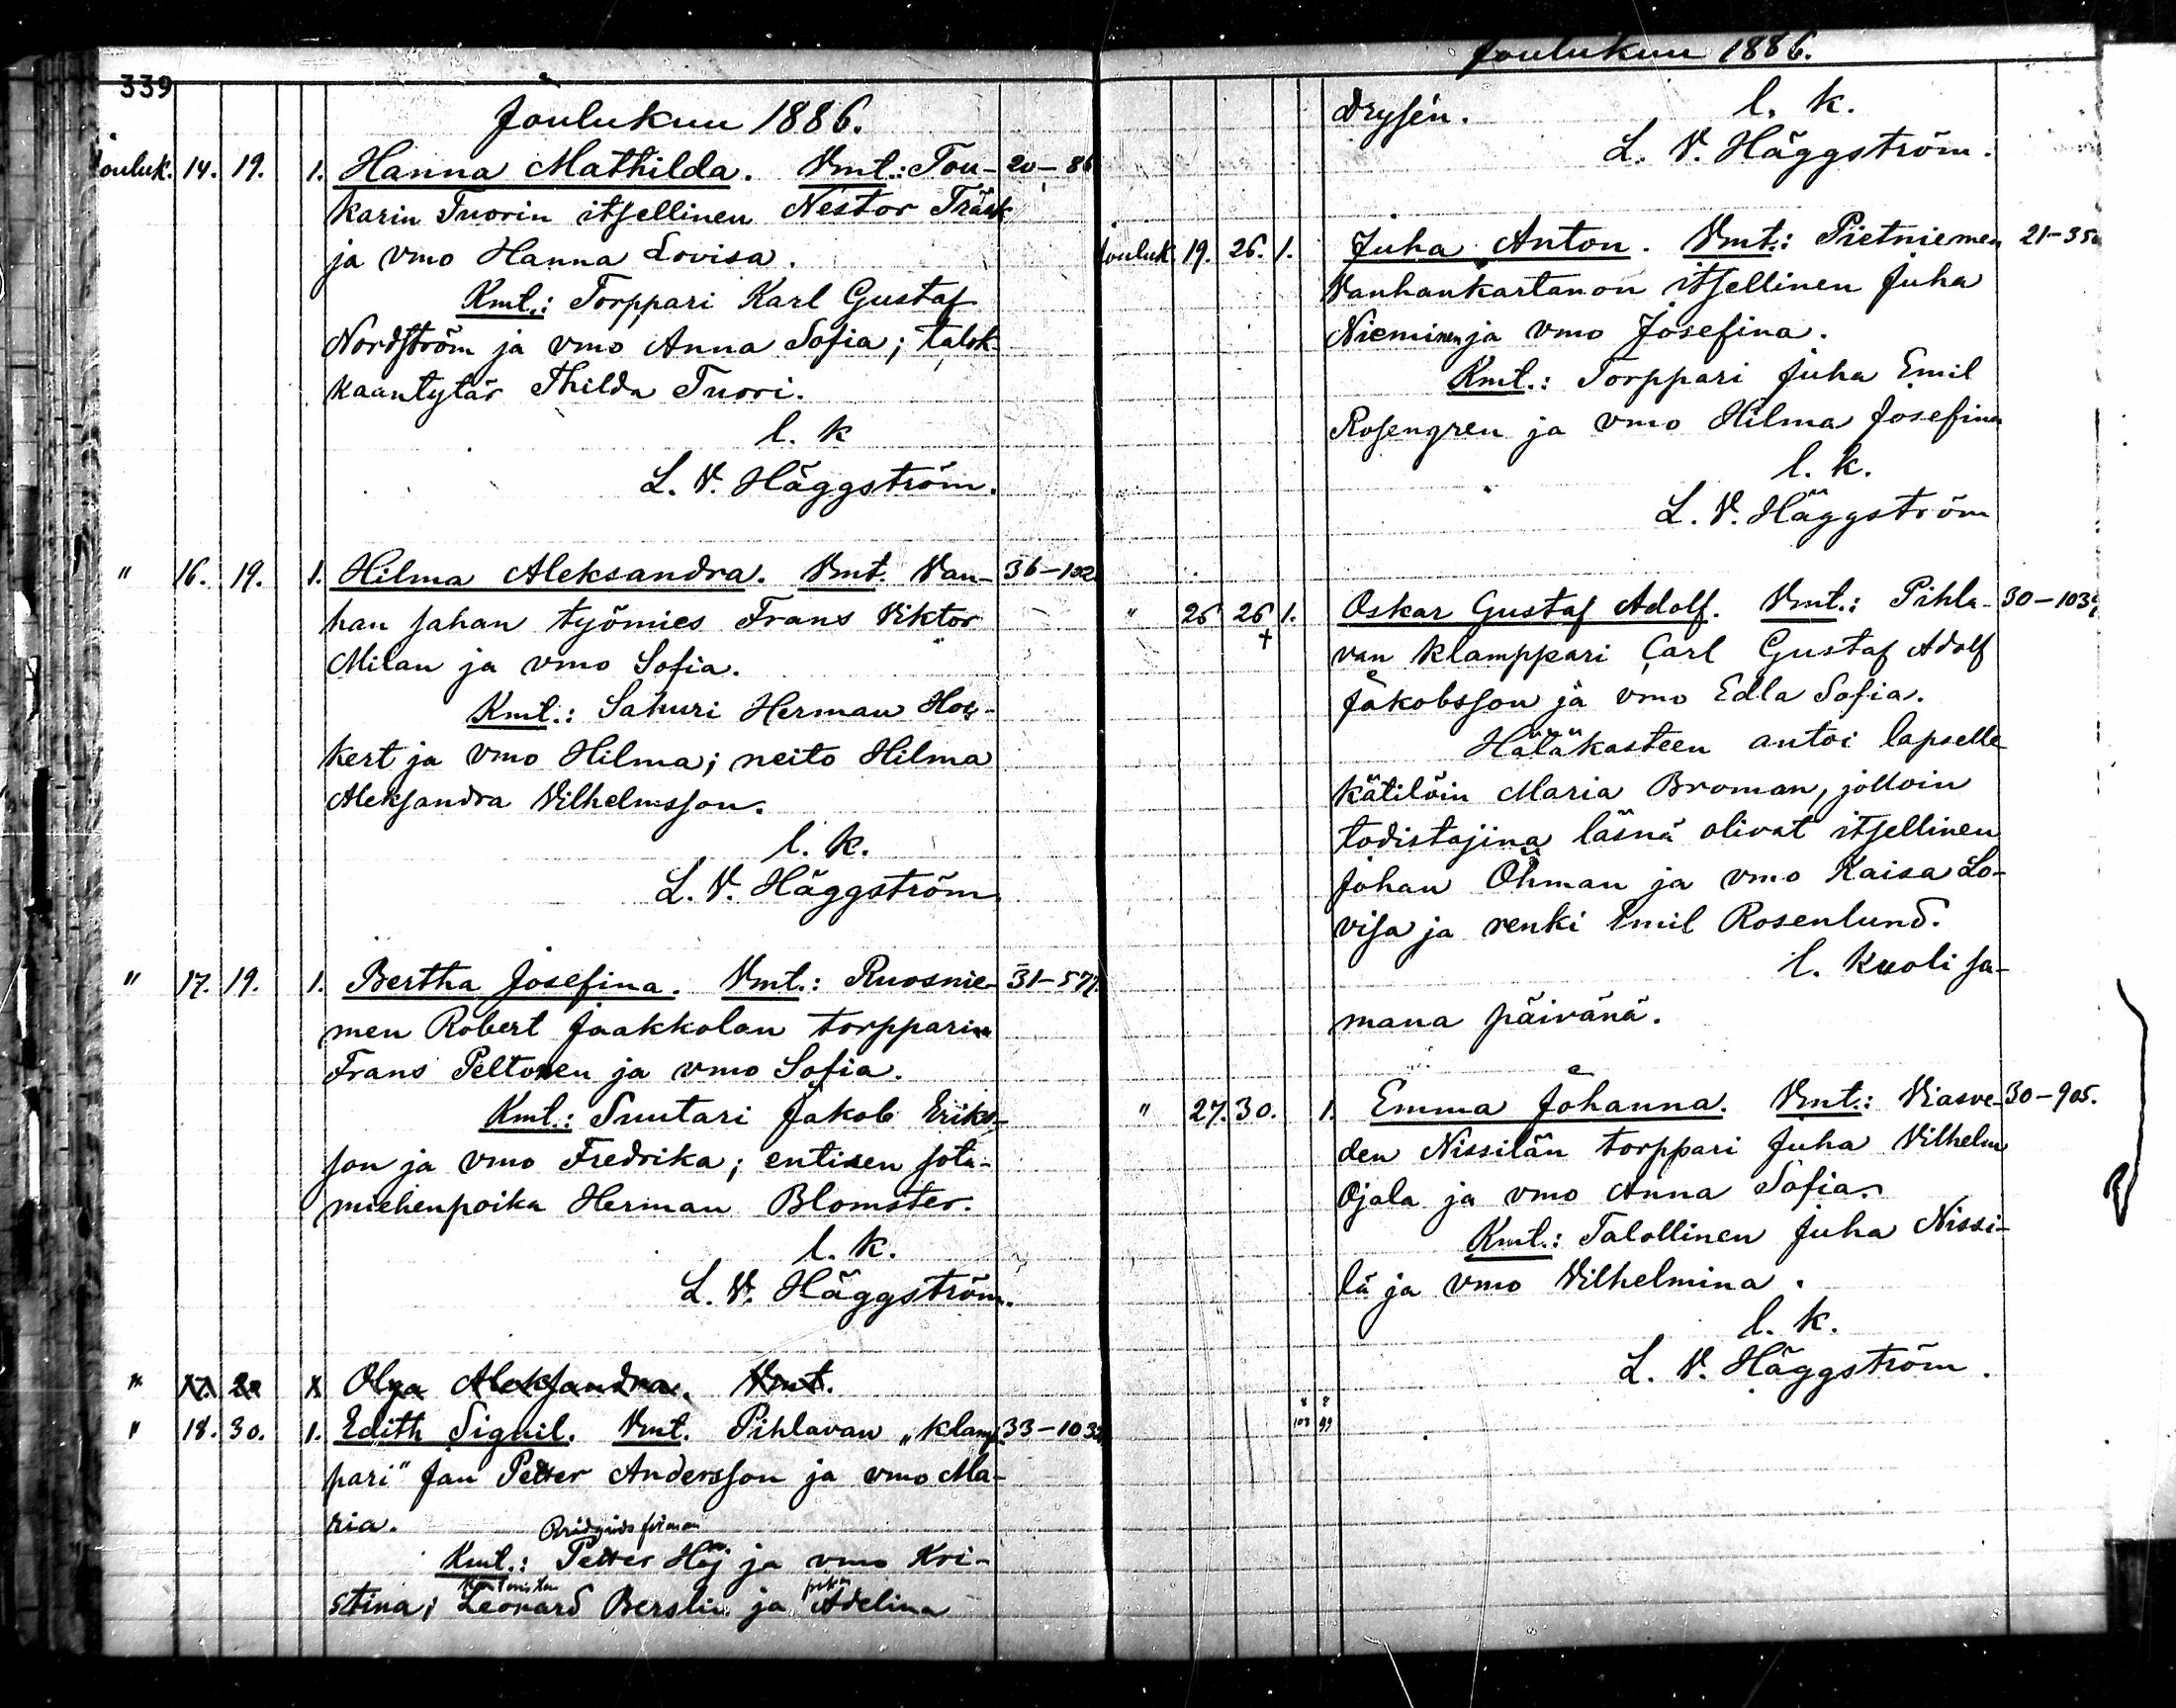 339
Joulukuu 1886.
Jouluk. 14. 19. 1. Hanna Mathilda. Vmt.: Tou- 20-86
karin Tuorin itsellinen Nestor Träsk
ja vmo Hanna Lovisa.
Kmt.: Torppari Karl Gustaf
Nordström ja vmo Anna Sofia; talok-
kaantytär Thilda Tuori.
l. k
L. V. Häggström.
" 16. 19. 1. Hilma Aleksandra. Vmt. Van- 36-102
han sahan työmies Frans Viktor
Milan ja vmo Sofia.
Kmt.: Sakuri Herman
kert ja vmo Hilma; neito Hilma
Aleksandra Vilhelmsson.
l. k.
L. V. Häggström
" 17. 19. 1. Bertha Josefina. Vmt.: Ruosnie- 31-577.
men Robert Jaakkolan torpparin
Frans Peltonen ja vmo Sofia.
Kmt.: Suutari Jakob Eriks-
son ja vmo Fredrika; entisen sota-
miehenpoika Herman Blomster.
l. k.
L. V. Häggström.
" Olga Aleksandra. Vmt.
" 18. 30. 1. Edith Signil. Vmt. Pihlavan „klamp- 33-103
pari" Jan Petter Andersson ja vmo Ma-
ria.
Kmt.: Petter Höj ja vmo Kri-
stina; Leonard Berslin ja Adelina
Joulukuu 1886.
Drysén. l. k.
L. V. Häggström.
Jouluk. 19. 26. 1. Juha Anton. Vmt.: Pietniemen 21-35
Vanhankartanon itsellinen Juha
Nieminen ja vmo Josefina.
Kmt.: Torppari Juha Emil
Rosengren ja vmo Hilma Josefina
l. k.
L. V. Häggström
" 26 26 1. Oskar Gustaf Adolf. Vmt.: Pihla- 30-103
+ van klamppari Carl Gustaf Adolf
Jakobsson ja vmo Edla Sofia.
Hätäkasteen antoi lapselle
kätilöin Maria Broman, jolloin
todistajina läsnä olivat itsellinen
Johan Öhman ja vmo Kaisa Lo-
visa ja renki Emil Rosenlund.
l. kuoli sa-
mana päivänä.
" 27. 30. 1. Emma Johanna. Vmt.: Viasve- 30-905.
den Nissilän torppari Juha Vilhelm
Ojala ja vmo Anna Sofia.
Kmt.: Talollinen Juha Nissi-
lä ja vmo Vilhelmina.
l. k.
L. V. Häggström.